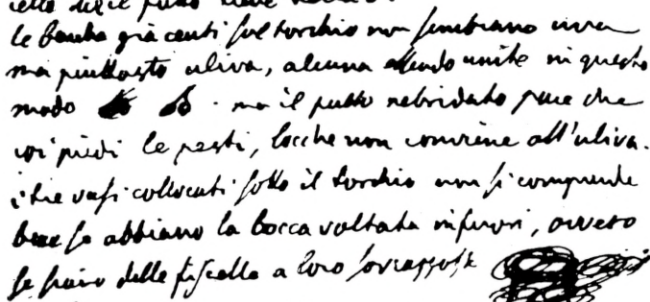 le bacche giacenti sul torchio non sembrano uva
ma piuttosto uliva, alcuna essendo unite in questo
modo . ma il putto nebridato pare che
coi piedi le pesti, locche non conviene all'uliva.
i tre vasi collocati sotto il torchio non si comprende
bene se abbiano la bocca voltata infuori, ovvero
se siano delle fiscelle a loro